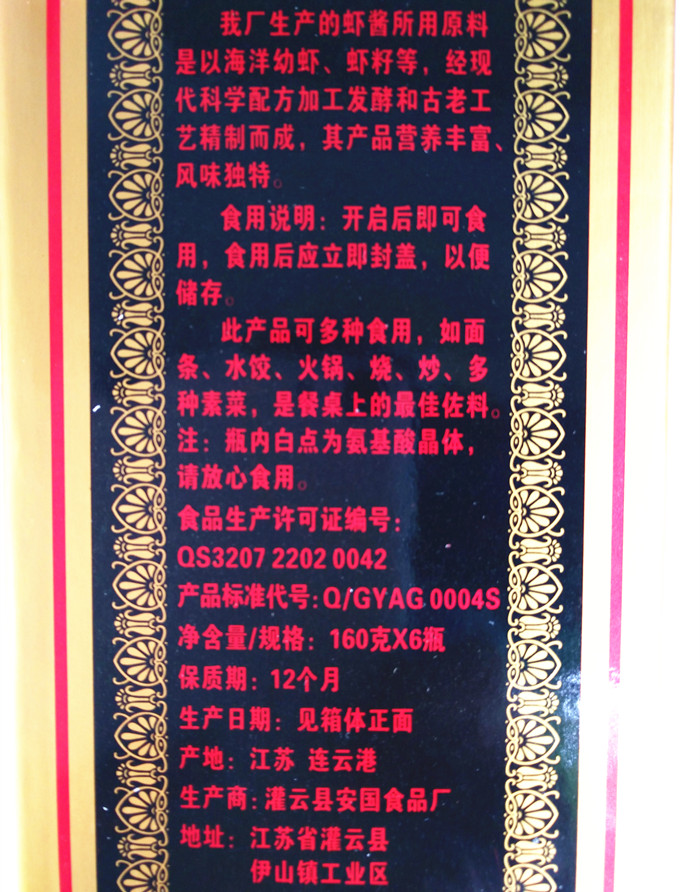 我厂生产的虾酱所用原料
是以海洋幼虾、虾籽等，经现
代科学配方加工发酵和古老工
艺精制而成，其产品营养丰富、
风味独特。
食用说明：开启后即可食
用，食用后应立即封盖，以便
储存。
此产品可多种食用，如面
条、水饺、火锅、烧、炒、多
种素菜，是餐桌上的最佳佐料。
注：瓶内白点为氨基酸晶体，
请放心食用。
食品生产许可证编号：
QS3207 2202 0042
产品标准代号：Q/GYAG 0004S
净含量/规格：160克X6瓶
保质期：12个月
生产日期：见箱体正面
产地：江苏 连云港
生产商：灌云县安国食品厂
地址：江苏省灌云县
伊山镇工业区